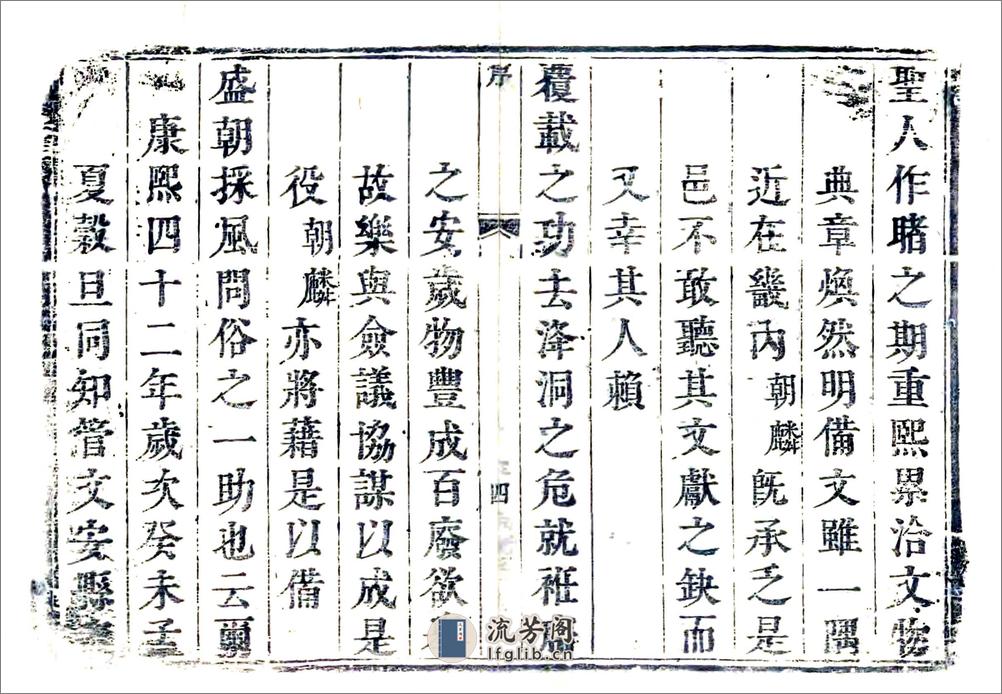 聖人作睹之期重熙累洽文物
典章煥然明備文雖一隅
近在畿內朝麟既承乏是
邑不敢聽其文獻之缺而
又幸其人賴
覆載之功去洚洞之危就衽
序
四
之安歲物豐成百廢欲
故樂與僉議協謀以成是
役朝麟亦將藉是以備
盛朝採風問俗之一助也云爾
康熙四十二年歲次癸未孟
夏榖旦同知管文安縣事
流芳阁
lfglib.cn